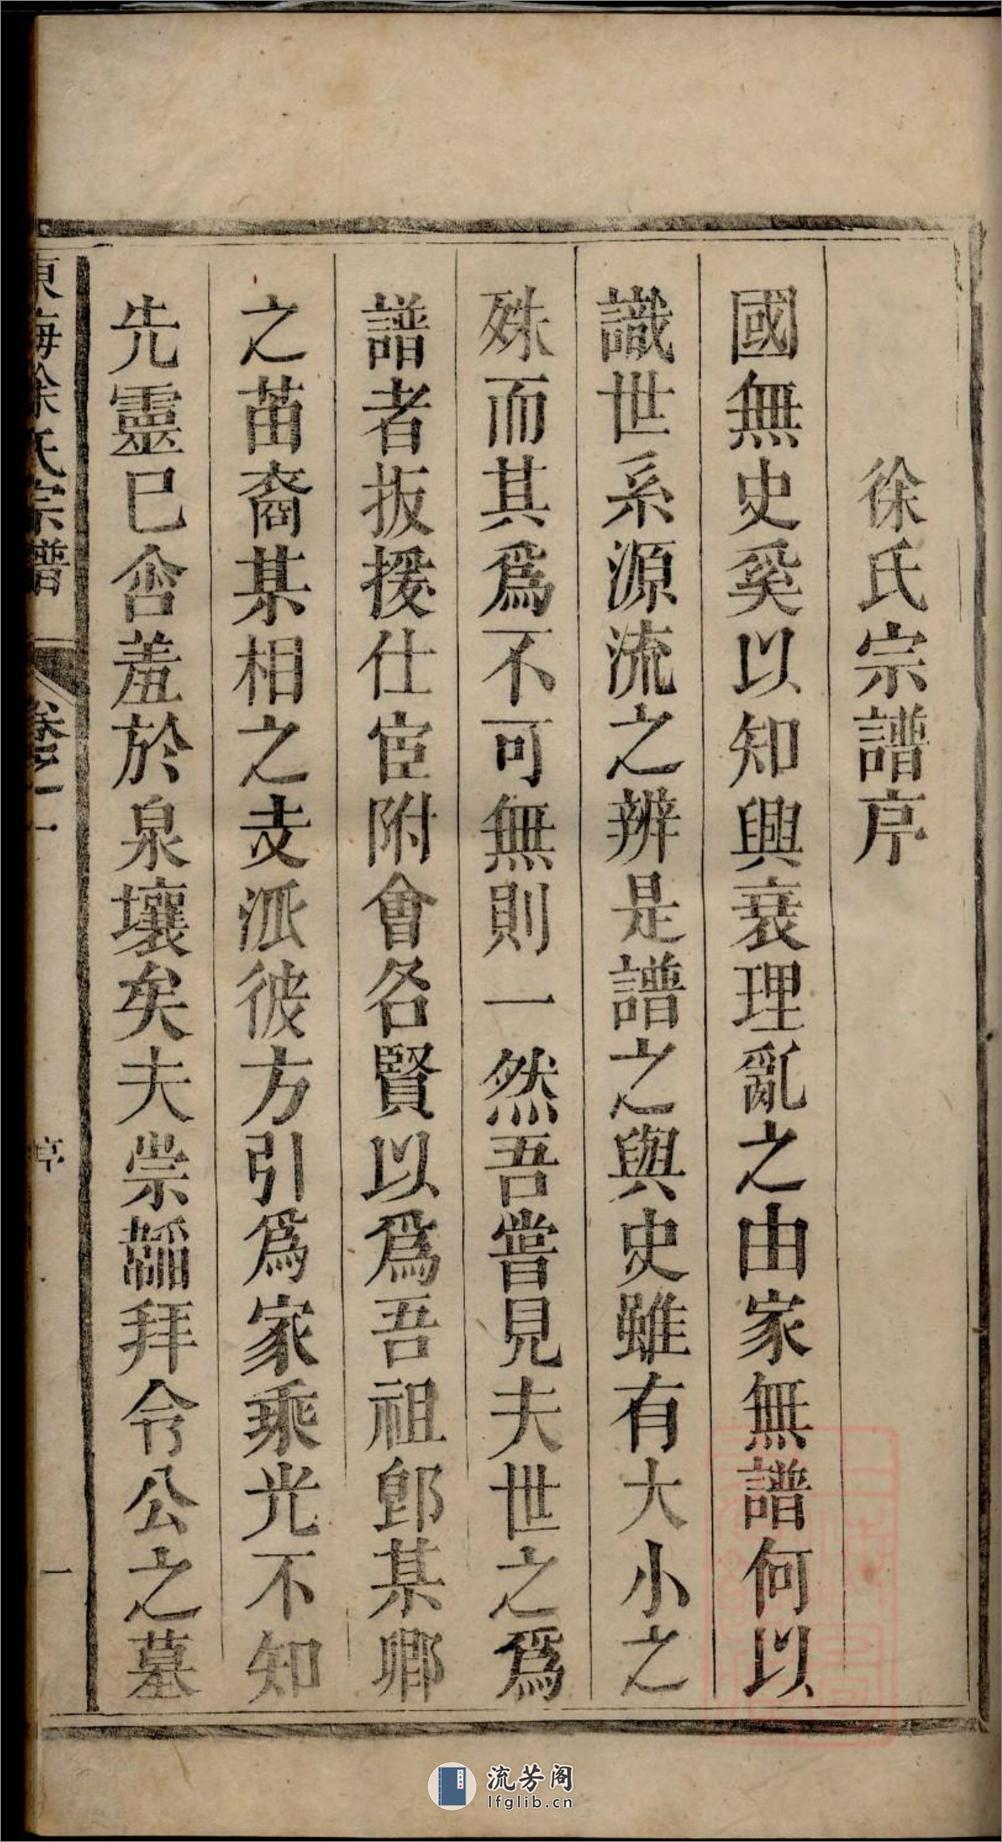 徐氏宗譜序
國無史奚以知興衰理亂之由家無譜何以
識世系源流之辨是譜之與史雖有大小之
殊而其爲不可無則一然吾嘗見夫世之爲
譜者扳援仕宦附會名賢以爲吾祖卽某卿
之苗裔某相之支派彼方引爲家乘光不知
先靈已含羞於泉壤矣夫崇韜拜令公之墓
東海徐氏宗譜 卷之一 序 一
流芳阁
lfglib.cn